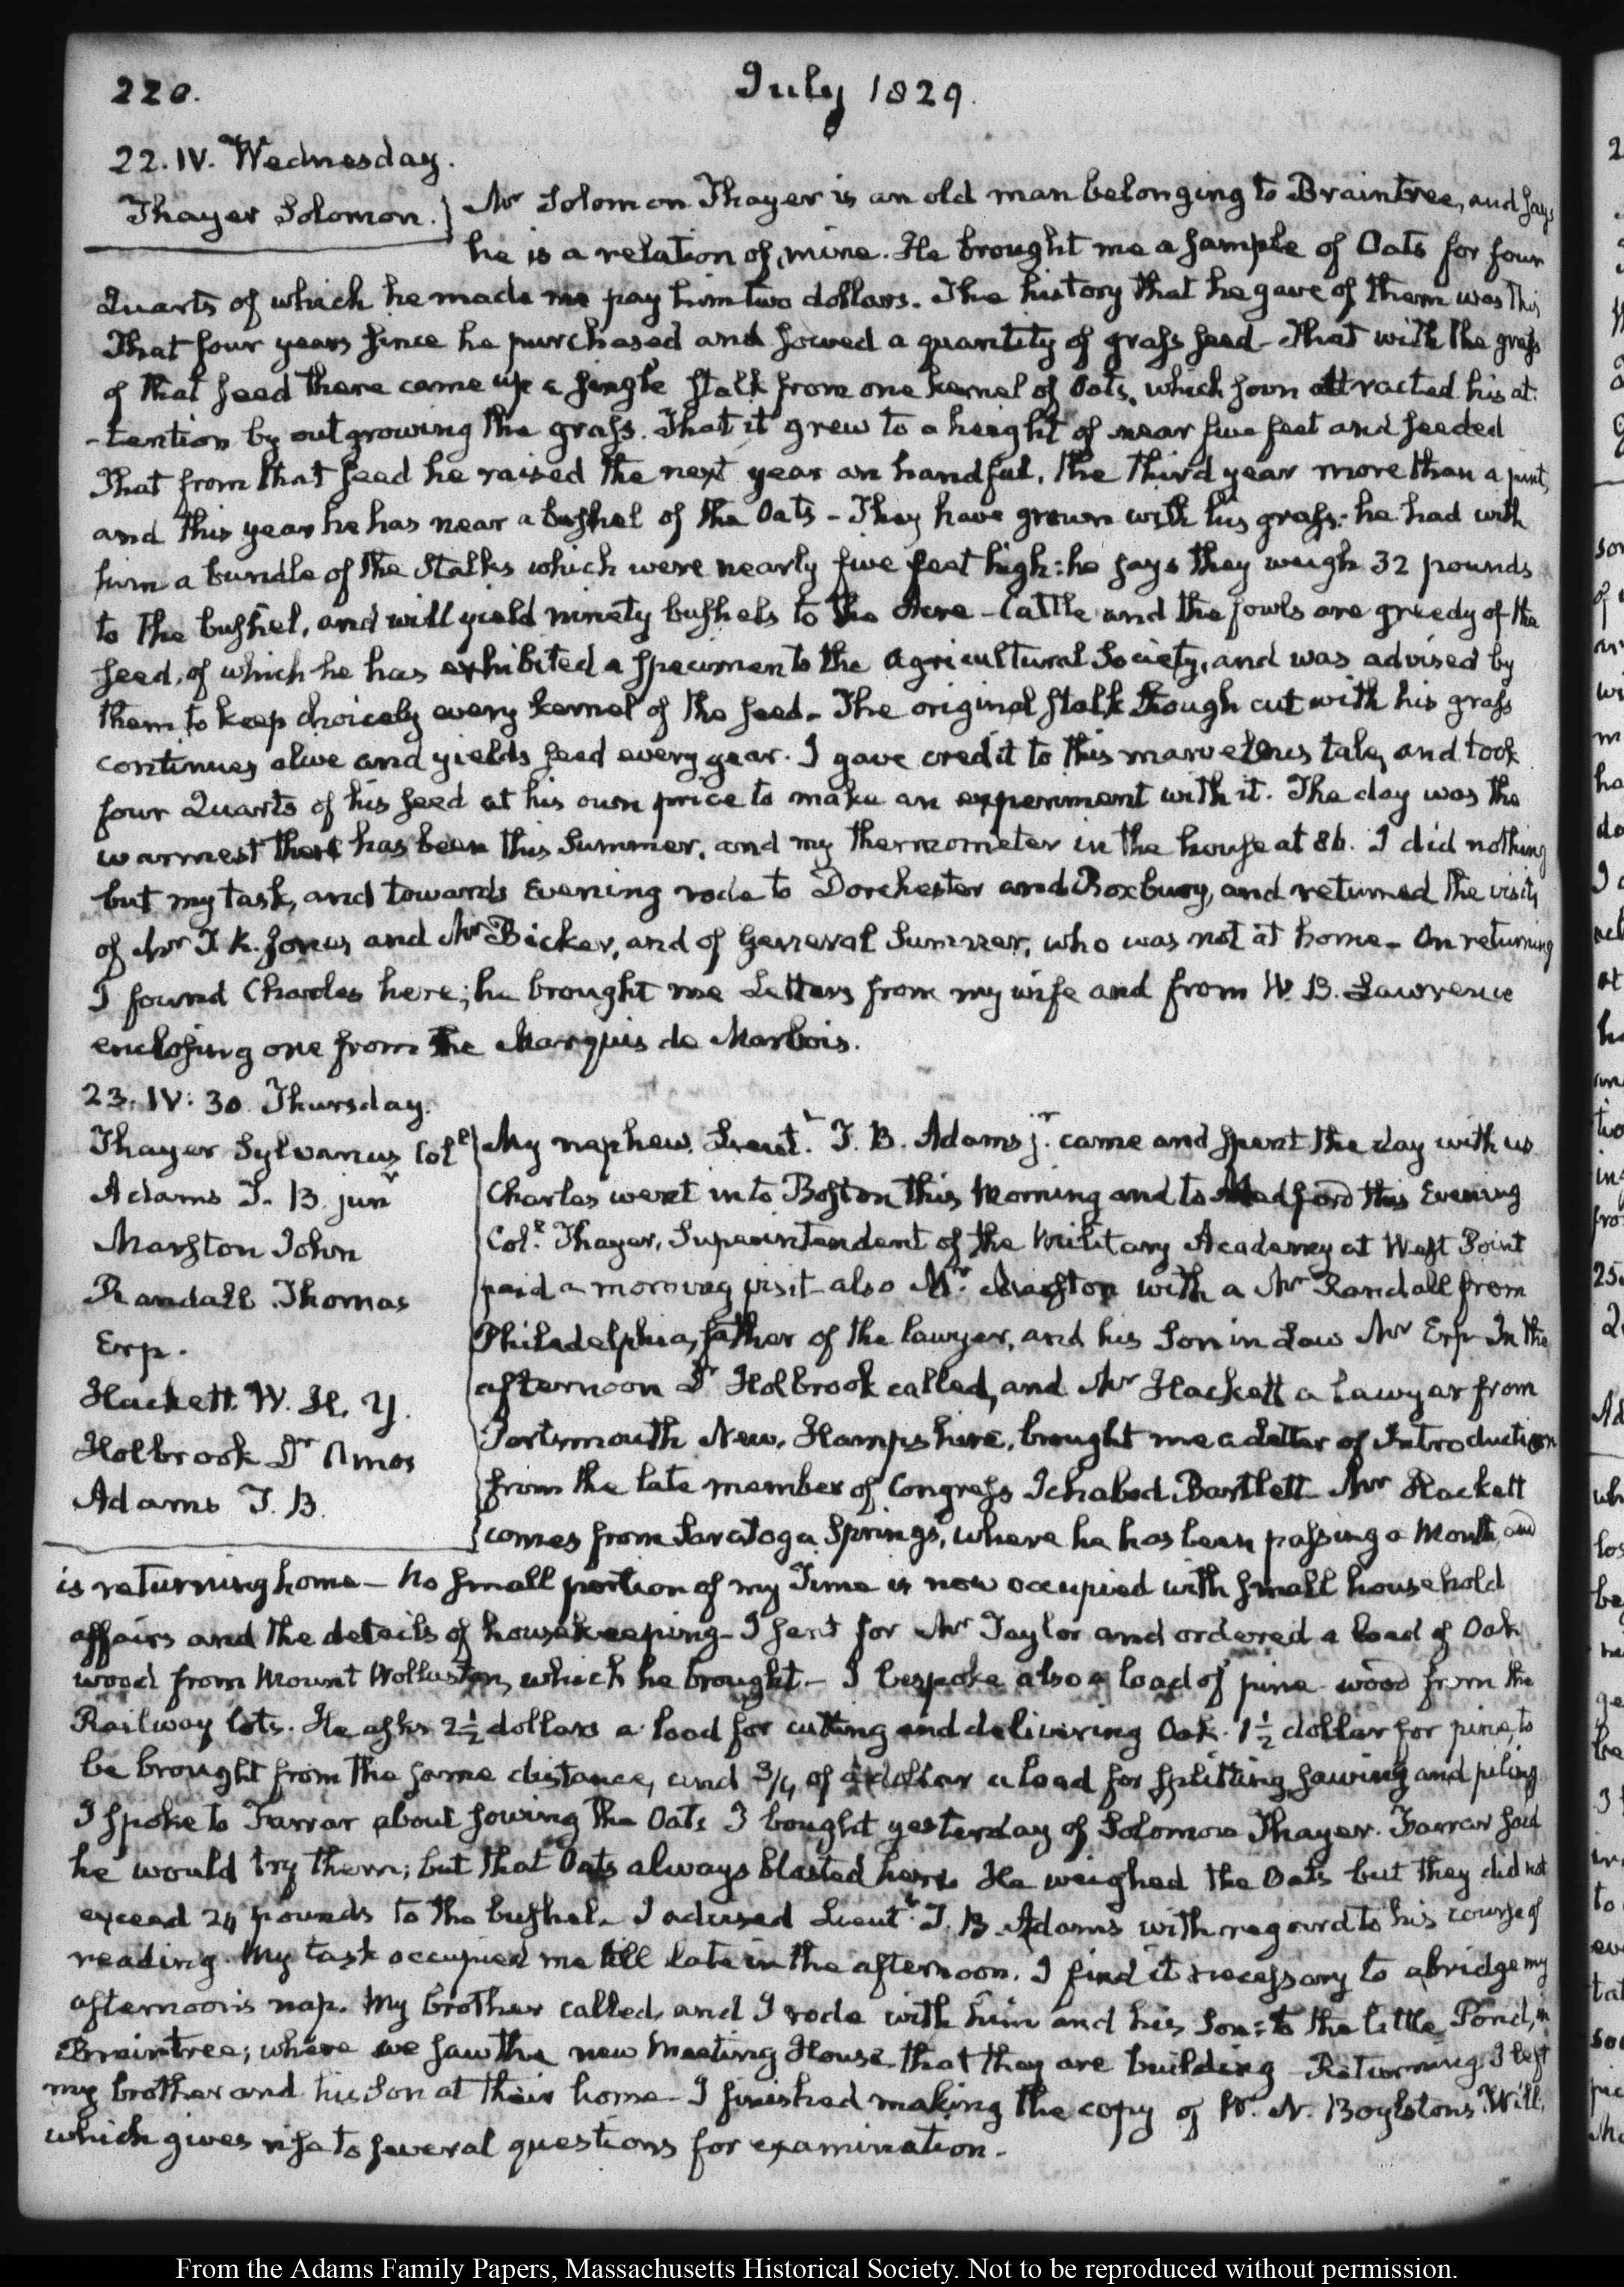 220.
July 1829.
22. IV. Wednesday.
Thayer Solomon.
Mr Solomon Thayer is an old man belonging to Braintree, and says
he is a relation of mine. He brought me a sample of Oats for four
Quarts of which he made me pay him two dollars. The history that he gave of them was this
That four years since he purchased and sowed a quantity of grass seed - That with the grass
of that seed there came up a single stalk from one kernel of Oats, which soon attracted his at
-tention by outgrowing the grass. That it grew to a height of near five feet and seeded
That from that seed he raised the next year an handful, the third year more than a pint,
and this year he has near a bushel of the Oats - They have grown with his grass: he had with
him a bundle of the Stalks which were nearly five feet high: he says they weigh 32 pounds
to the bushel, and will yield ninety bushels to the Acre - Cattle and the fowls are greedy of the
seed, of which he has exhibited a specimen to the Agricultural Society, and was advised by
them to keep choicely every kernel of the seed - The original stalk though cut with his grass
continues alive and yields seed every year. I gave credit to this marvellous tale, and took
four Quarts of his seed at his own price to make an experiment with it. The day was the
warmest that has been this Summer, and my thermometer in the house at 86. I did nothing
but my task, and towards Evening rode to Dorchester and Roxbury, and returned the visits
of Mr T. K. Jones and Mr Bicker, and of General Sumner, who was not at home - On returning
I found Charles here; he brought me Letters from my wife and from W. B. Lawrence
enclosing one from the Marquis de Marbois.
23. IV: 30. Thursday.
Thayer Sylvanus Coll
Adams T. B. junr
Marston John
Randall Thomas
Erp.
Hackett W. H. Y.
Holbrook Dr Amos
Adams T. B.
My nephew Lieut.t T. B. Adams jr. came and spent the day with us
Charles went into Boston this Morning and to Medford this Evening
Coll. Thayer, Superintendent of the Military Academy at West Point
paid a morning visit - also Mr. Marston with a Mr Randall from
Philadelphia, father of the lawyer, and his Son in Law Mr Erp In the
afternoon Dr Holbrook called, and Mr Hackett a lawyer from
Portsmouth New Hampshire, brought me a Letter of Introduction
from the late member of Congress Ichabod Bartlett - Mr Hackett
comes from Saratoga Springs, where he has been passing a Month, and
is returning home - No small portion of my Time is now occupied with small household
affairs and the details of housekeeping - I sent for Mr Taylor and ordered a load of Oak
wood from Mount Wollaston, which he brought - I bespoke also a load of pine wood from the
Railway lots. He asks 2½ dollars a load for cutting and delivering Oak. 1½ dollar for pine, to
be brought from the same distance, and 3/4 of a dollar a load for splitting sawing and piling
I spoke to Farrar about sowing the Oats I bought yesterday of Solomon Thayer. Farrar said
he would try them; but that Oats always blasted here. He weighed the Oats but they did not
exceed 24 pounds to the bushel. I advised Lieut.t T. B. Adams with regard to his course of
reading. My task occupied me till late in the afternoon. I find it necessary to abridge my
afternoon's nap. My brother called, and I rode with him and his Son to the little Pond, in
Braintree; where we saw the new Meeting House that they are building - Returning I left
my brother and his Son at their home - I finished making the copy of W. N. Boylston's Will,
which gives rise to several questions for examination.
From the Adams Family Papers, Massachusetts Historical Society. Not to be reproduced without permission.